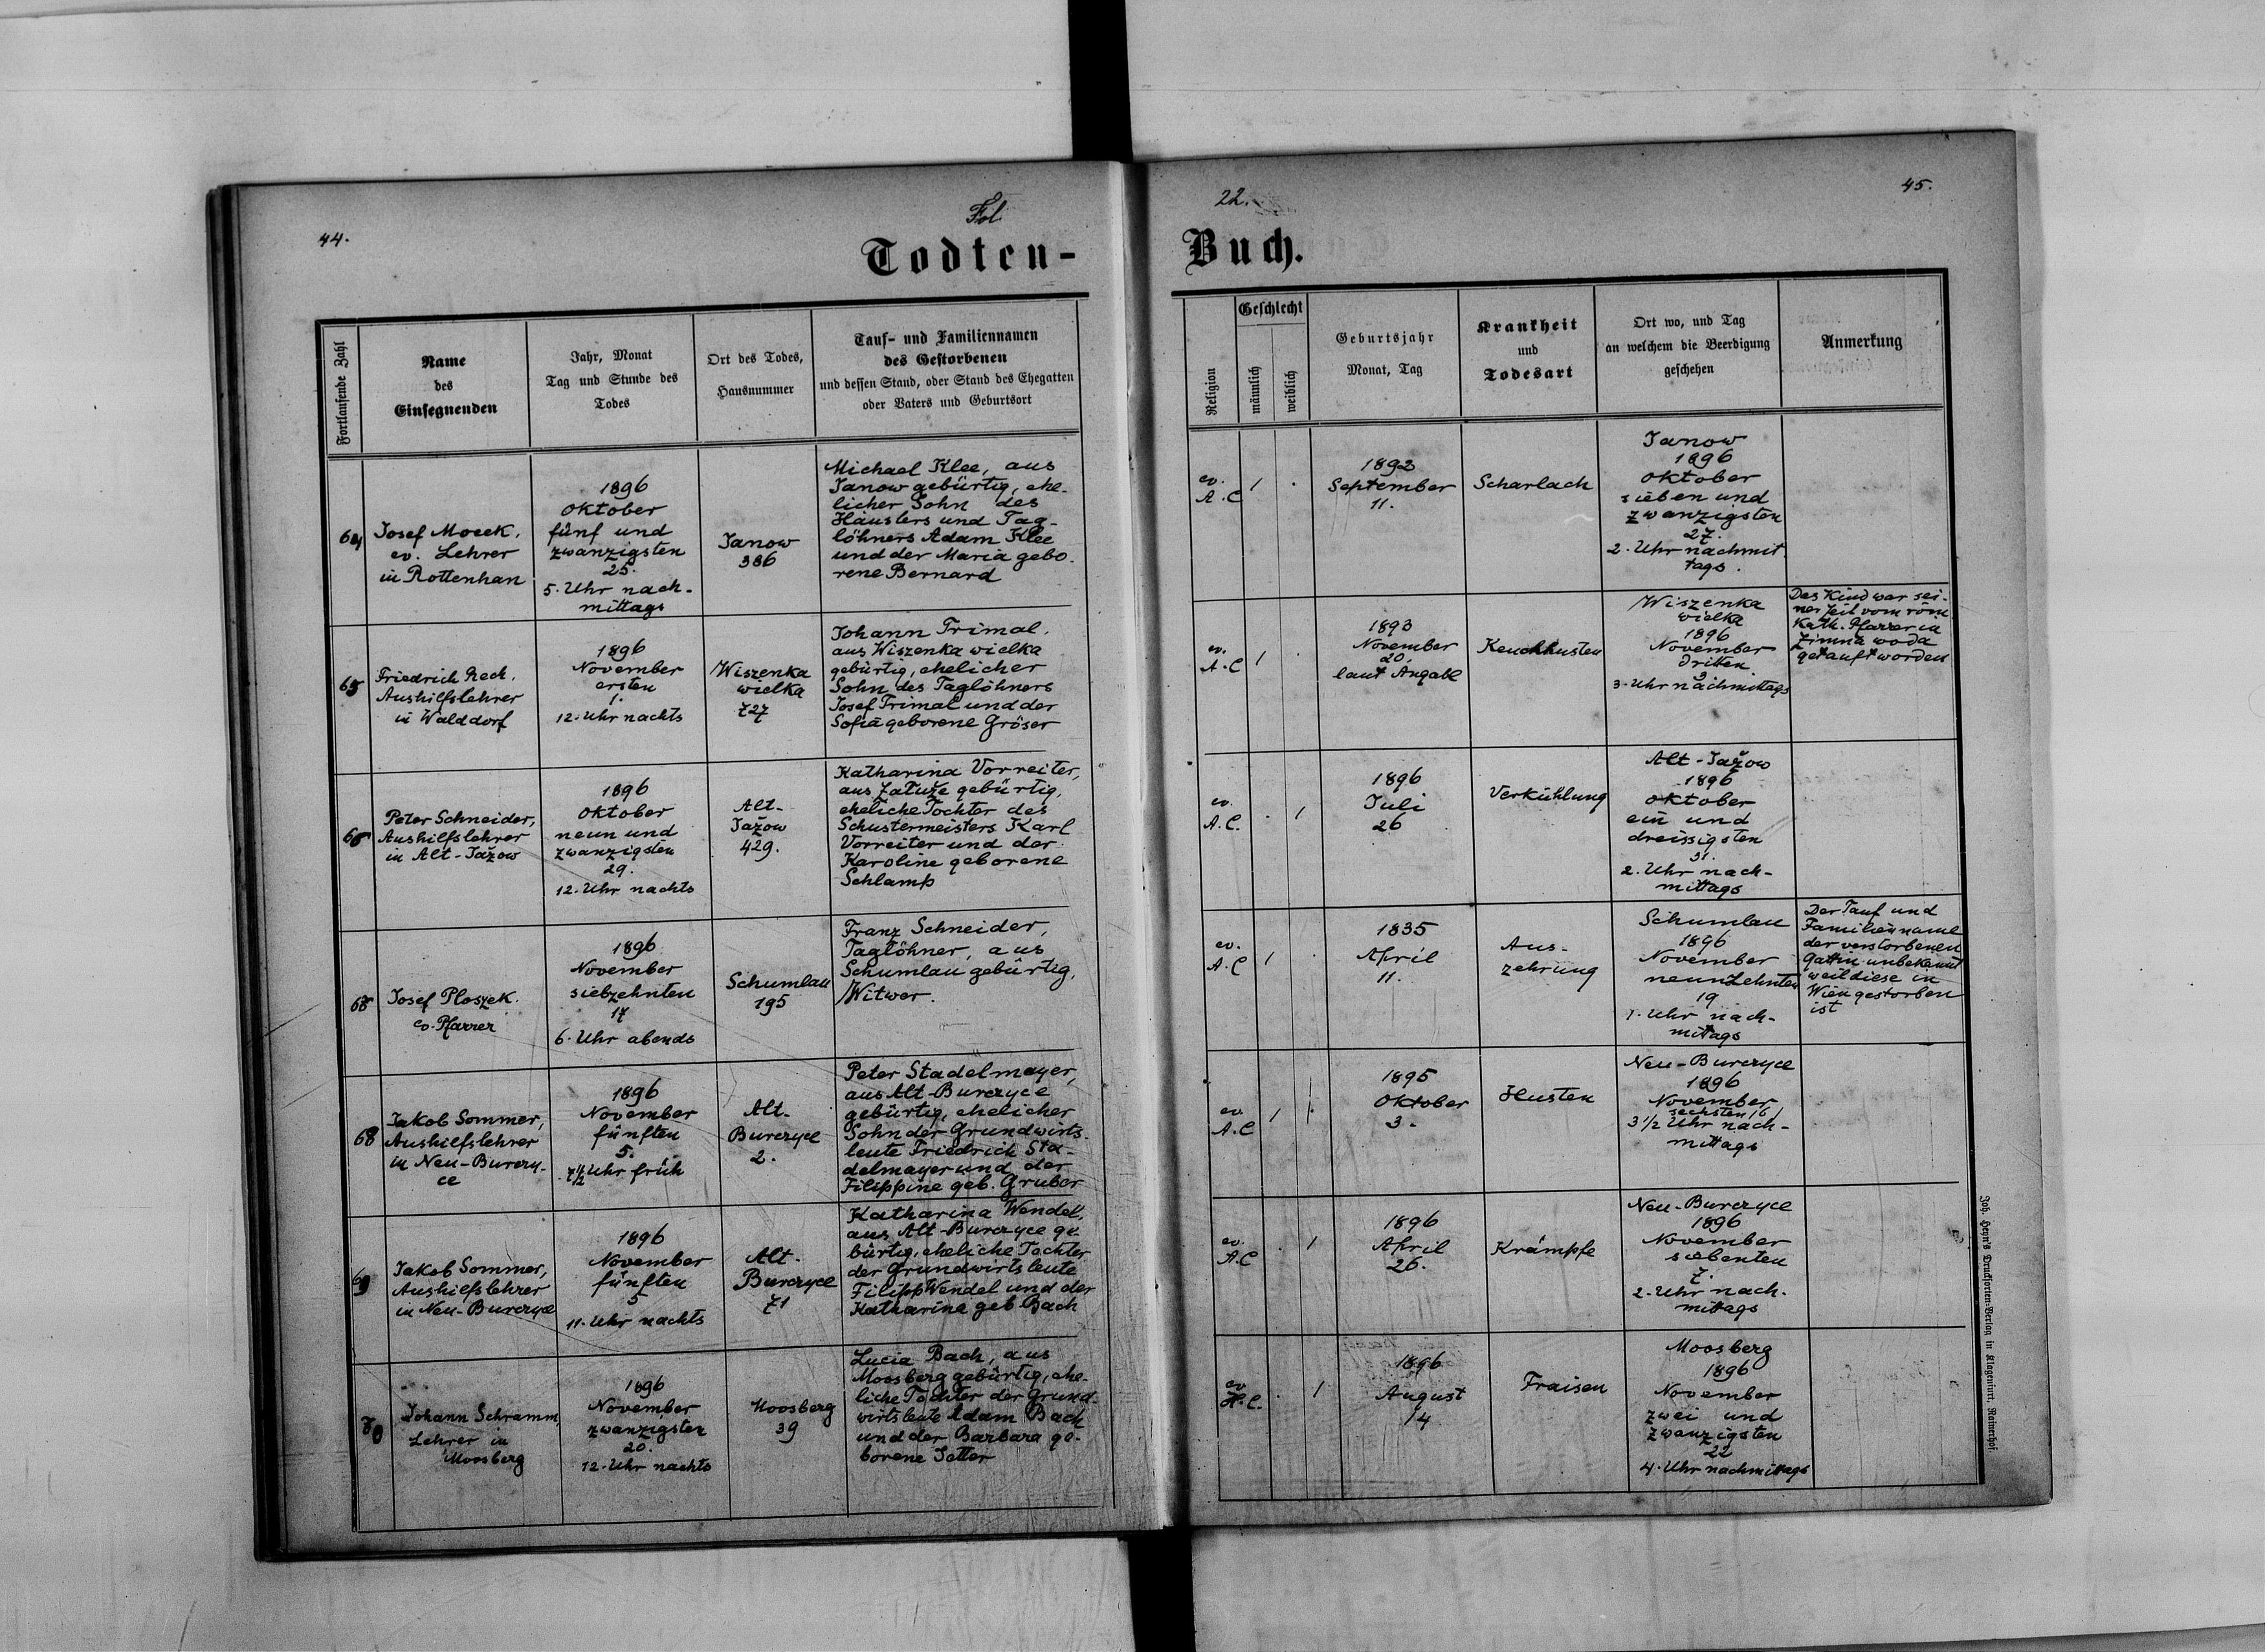 44.
Fol.
Todten-
Fortlaufende Zahl
Name
des
Einsegnenden
Jahr, Monat
Tag und Stunde des
Todes
Ort des Todes,
Hausnummer
Tauf- und Familiennamen
des Gestorbenen
und dessen Stand, oder Stand des Ehegatten
oder Vaters und Geburtsort
64
Josef Mocek.
ev. Lehrer
in Rottenhan
1896
Oktober
fünf und
zwanzigsten
25.
5. Uhr nach-
mittags
Janow
386
Michael Klee, aus
Janow gebürtig, ehe-
licher Sohn des
Häuslers und Tag-
löhners Adam Klee
und der Maria gebo-
rene Bernard
65
Friedrich Rech.
Aushilfslehrer
in Walddorf
1896
November
ersten
1.
12. Uhr nachts
Wiszenka
wielka
727
Johann Trimal.
aus Wiszenka wielka
gebürtig, ehelicher
Sohn des Taglöhners
Josef Trimal und der
Sofia geborene Gröser
66
Peter Schneider,
Aushilfslehrer
in Alt-Jažow
1896
Oktober
neun und
zwanzigsten
29.
12. Uhr nachts
Alt-
Jažow
429.
Katharina Vorreiter,
aus Załuże gebürtig,
eheliche Tochter des
Schustermeisters Karl
Vorreiter und der
Karoline geborene
Schlamp
Josef Ploszek.
ev. Pfarrer
1896
November
siebzehnten
17
6. Uhr abends
Schumlau
195
Franz Schneider,
Taglöhner, aus
Schumlau gebürtig,
Witwer.
68
Jakob Sommer,
Aushilfslehrer
in Neu-Burczy-
ce
1896
November
fünften
5.
7½ Uhr früh
Alt-
Burczyce
2.
Peter Stadelmayer,
aus Alt-Burczyce
gebürtig, ehelicher
Sohn der Grundwirts-
leute Friedrich Sta-
delmayer und der
Filippine geb. Gruber
69
Jakob Sommer,
Aushilfslehrer
in Neu-Burczyce
1896
November
fünften
5
11. Uhr nachts
Alt-
Burczyce
71
Katharina Wendel,
aus Alt-Burczyce ge-
bürtig, eheliche Tochter
der Grundwirtsleute
Filipp Wendel und der
Katharina geb Bach
70
Johann Schramm,
Lehrer in
Moosberg
1896
November
zwanzigsten
20.
12. Uhr nachts
Moosberg
39
Lucia Bach, aus
Moosberg gebürtig, ehe-
liche Tochter der Grund-
wirtsleute Adam Bach
und der Barbara ge-
borene Jetter
22.
45.
Buch.
Religion
Geschlecht
männlich
weiblich
Geburtsjahr
Monat, Tag
Krankheit
und
Todesart
Ort wo, und Tag
an welchem die Beerdigung
geschehen
Anmerkung
ev.
A.C
1892
September
11.
Scharlach
Janow
1896
Oktober
sieben und
zwanzigsten
27.
2. Uhr nachmit
tags.
ev.
A.C
1893
November
20.
laut Angabe
Keuchhusten
Wiszenka
wielka
1896
November
dritten
3
3. Uhr nachmittags
Das Kind war sei-
ner Zeit vom röm
Kath. Pfarrer in
Zimna woda
getauft worden
ev.
A.C.
1896
Juli
26
Verkühlung
Alt-Jažow
1896
Oktober
ein und
dreissigsten
31.
2. Uhr nach-
mittags
ev.
A.C
1835
April
11.
Aus-
zehrung
Schumlau
1896
November
neunzehnten
19
1. Uhr nach-
mittags
Der Tauf und
Familienname
der verstorbenen
Gattin unbekannt
weil diese in
Wien gestorben
ist
ev.
A.C
1895
Oktober
3.
Husten
Neu-Burczyce
1896
November
sechsten /6/
3½ Uhr nach-
mittags
ev.
A.C
1896
April
26.
Krämpfe
Neu-Burczyce
1896
November
siebenten
7.
2. Uhr nach-
mittags
ev
H.C.
1896
August
14
Fraisen
Moosberg
1896
November
zwei und
zwanzigsten
22
4. Uhr nachmittags
Joh. Heyn's Drucksorten-Verlag in Klagenfurt, Rainerhof.